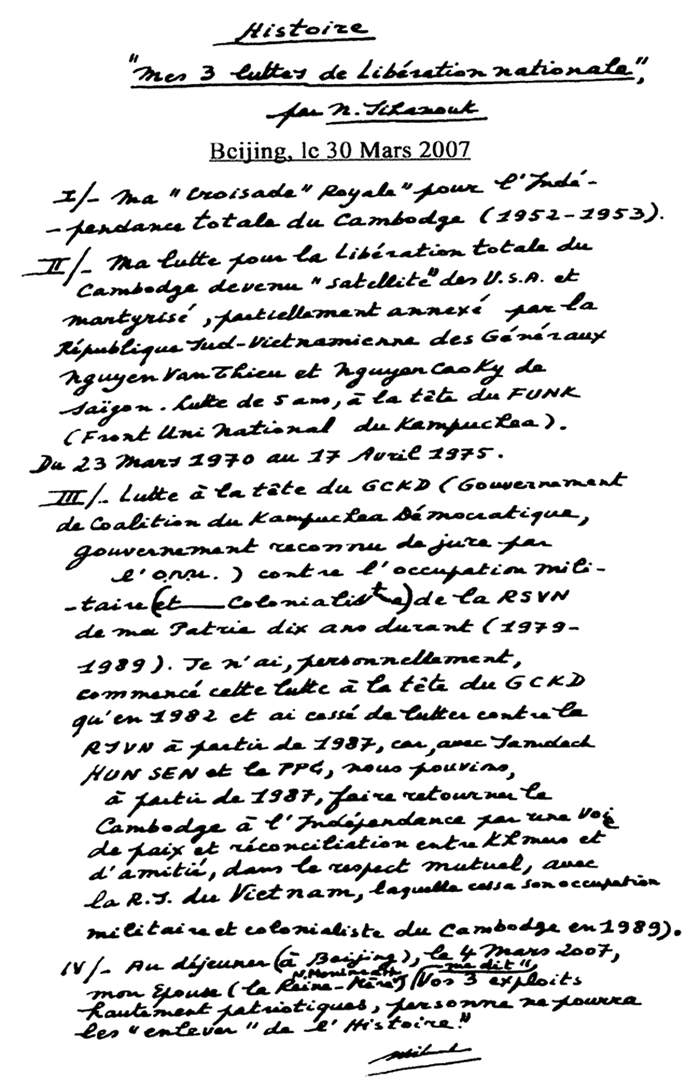 Histoire
"Mes 3 luttes de Libération nationale",
par N. Sihanouk
Beijing, le 30 Mars 2007
I/- Ma "Croisade" Royale" pour l'Indé-
-pendance totale du Cambodge (1952-1953).
II/- Ma lutte pour la Libération totale du
Cambodge devenu "satellité" des U.S.A. et
martyrisé, partiellement annexé par la
République Sud-Vietnamienne des Généraux
Nguyen Van Thieu et Nguyen Cao Ky de
Saïgon. Lutte de 5 ans, à la tête du FUNK
(Front Uni National du Kampuchea).
Du 23 Mars 1970 au 17 Avril 1975.
III/- Lutte à la tête du GCKD (Gouvernement
de Coalition du Kampuchea Démocratique,
gouvernement reconnu de jure par
l'O.N.U.) contre l'occupation mili-
-taire (et colonialiste) de la RSVN
de ma Patrie dix ans durant (1979-
1989). Je n'ai, personnellement,
commencé cette lutte à la tête du GCKD
qu'en 1982 et ai cessé de lutter contre la
RSVN à partir de 1987, car, avec Samdech
HUN SEN et le PPC, nous pouvions,
à partir de 1987, faire retourner le
Cambodge à l'Indépendance par une voie
de paix et réconciliation entre Khmers et
d'amitié, dans le respect mutuel, avec
la R.S. du Vietnam, laquelle cessa son occupation
militaire et colonialiste du Cambodge en 1989).
IV/- Au déjeuner (à Beijing), le 4 Mars 2007,
mon Epouse (la Reine-Mère N. Monineath) me dit "Vos 3 exploits
hautement patriotiques, personne ne pourra
les "enlever" de l'Histoire."